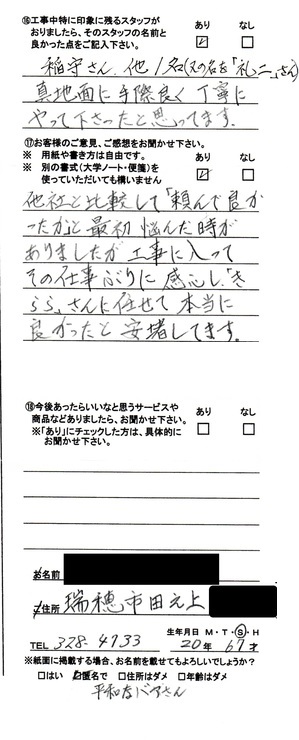 ⑯工事中特に印象に残るスタッフが
おりましたら、そのスタッフの名前と
良かった点をご記入下さい。
あり なし
稲守さん、他1名(又の名を「礼二」さん)
真地面に手際良く丁寧に
やって下さったと思ってます。
⑰お客様のご意見、ご感想をお聞かせ下さい。
※ 用紙や書き方は自由です。
※ 別の書式(大学ノート・便箋)を
使っていただいても構いません
あり なし
他社と比較して「頼んで良か
ったか」と最初悩んだ時が
ありましたが工事に入って
その仕事ぶりに感心し、「き
らら」さんに任せて本当に
良かったと安堵してます。
⑱今後あったらいいなと思うサービスや
商品などありましたら、お聞かせ下さい。
※「あり」にチェックした方は、具体的に
お聞かせ下さい。
あり なし
お名前
ご住所 瑞穂市田之上
生年月日 M・T・S・H
TEL 328-4733 20年 67才
※紙面に掲載する場合、お名前を載せてもよろしいでしょうか?
はい 匿名で 住所はダメ 年齢はダメ
平和なバアさん